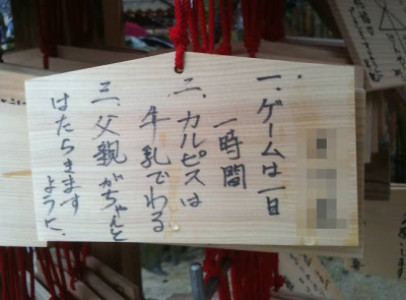 一、ゲームは一日
一時間
二、カルピスは
牛乳でわる
三、父親がちゃんと
はたらきます
ように、